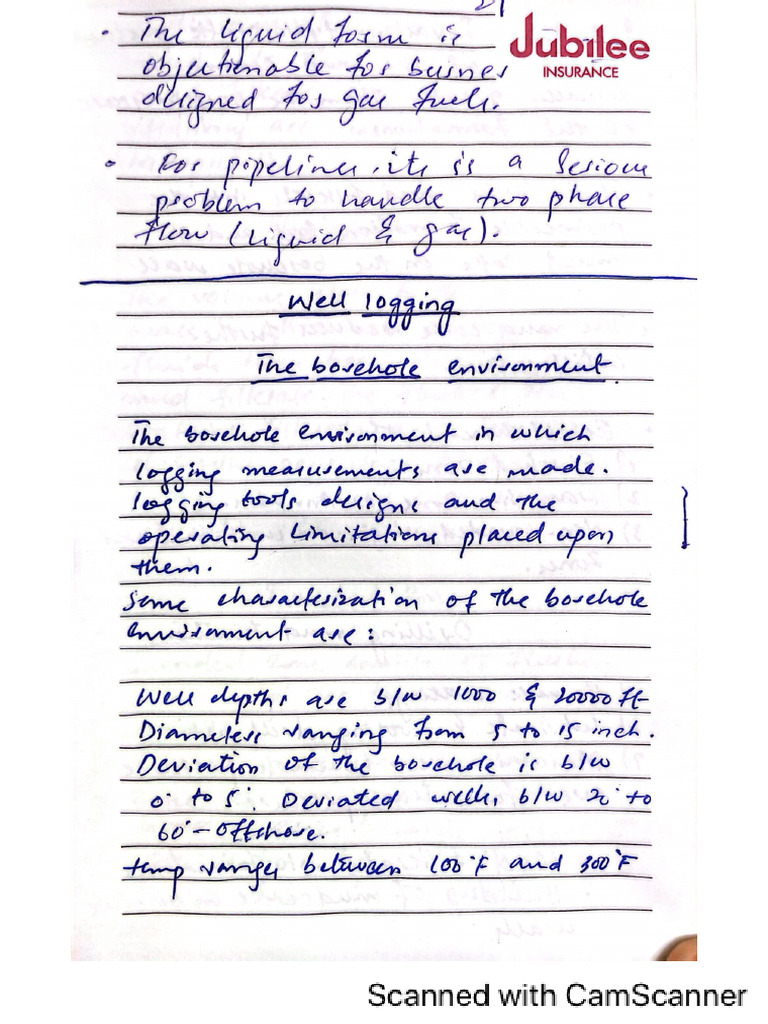 Jubilee
INSURANCE
• The liquid form is
objectionable for burner
designed for gas fuels.
• For pipelines, its is a serious
problem to handle two phase
flow (liquid & gas).
Well logging
The borehole environment.
The borehole environment in which
logging measurements are made.
logging tools designs and the
operating limitations placed upon
them.
Some characterization of the borehole
environment are:
Well depths are b/w 1000 & 20000 ft
Diameters ranging from 5 to 15 inch.
Deviation of the borehole is b/w
0° to 5°. Deviated wells, b/w 20° to
60° - offshore.
temp ranges between 100°F and 300°F
Scanned with CamScanner